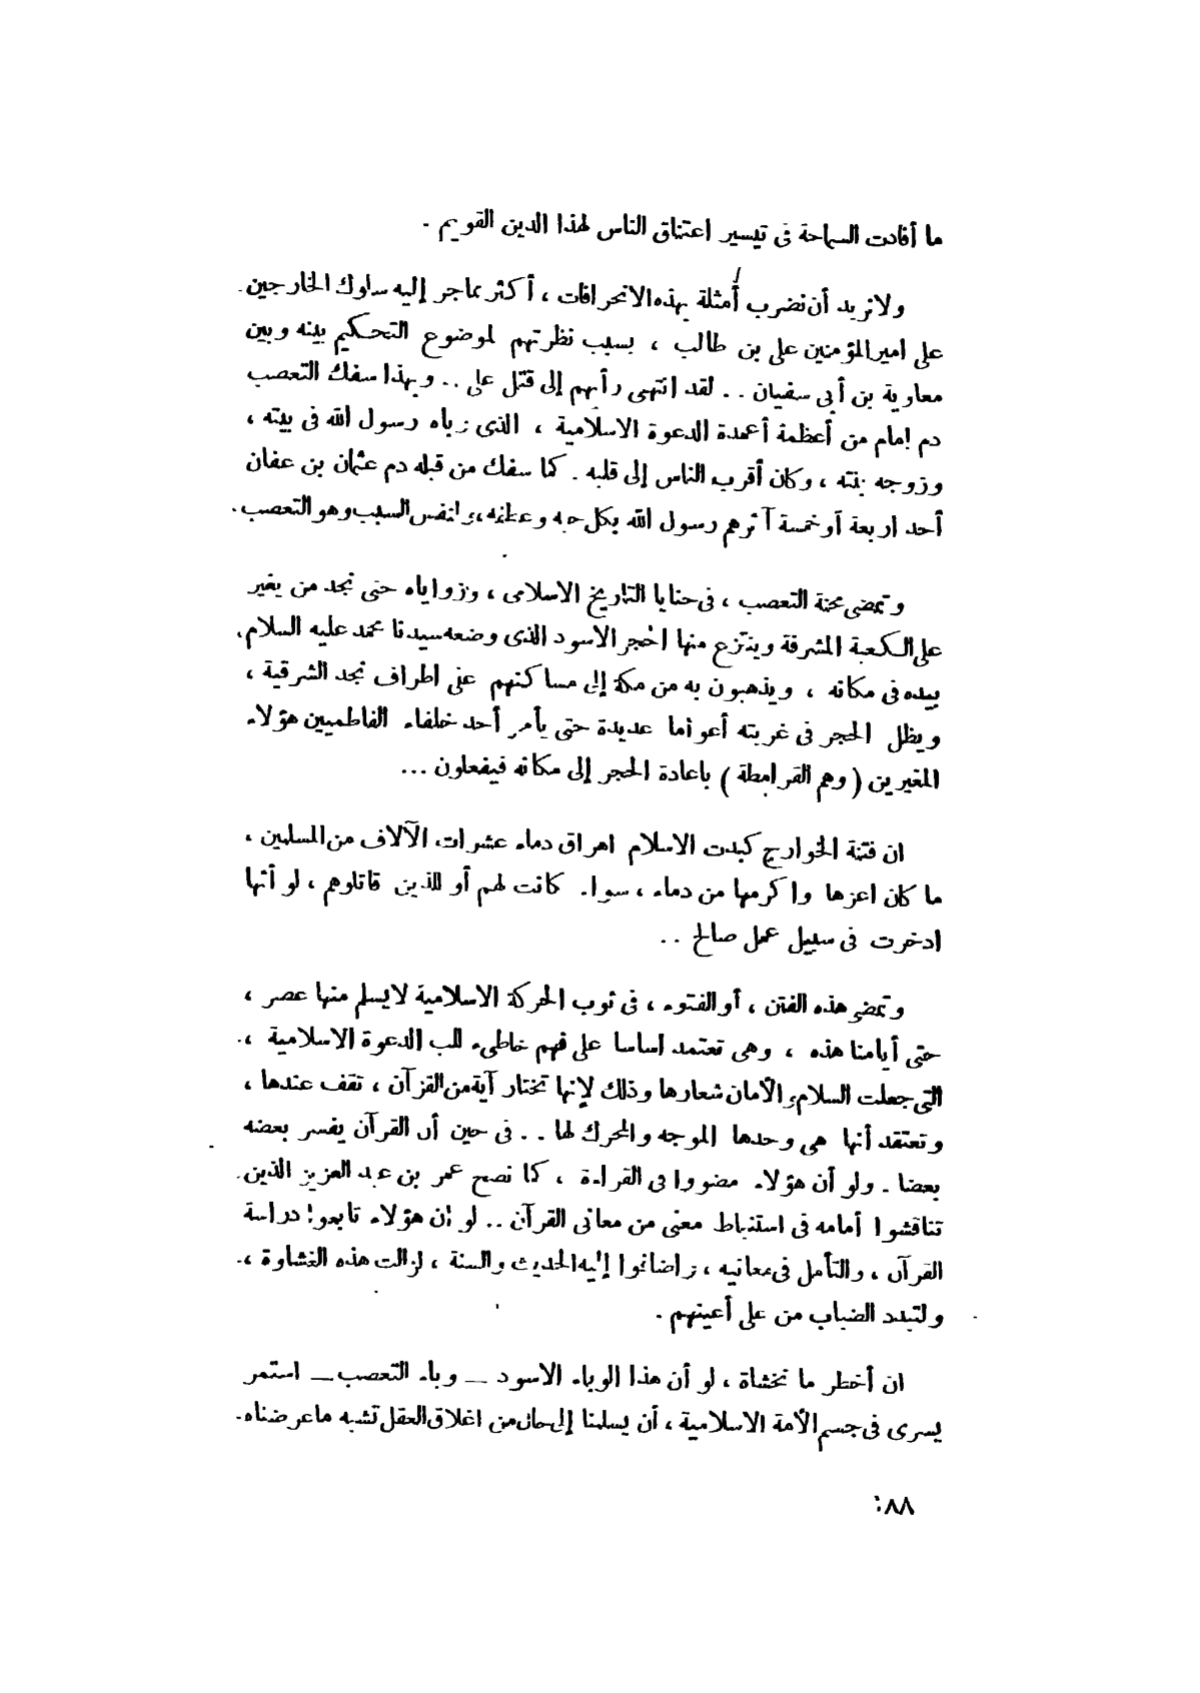 ما أفادت السماحة فى تيسير اعتناق الناس لهذا الدين القويم .
ولا نريد أن نضرب أمثلة بهذه الانحرافات ، أكثر مما جر إليه سلوك الخارجين
على امير المؤمنين على بن طالب ، بسبب نظرتهم لموضوع التحكيم بينه وبين
معاوية بن أبى سفيان . . لقد انتهى رأيهم إلى قتل على . . وبهذا سفك التعصب
دم إمام من أعظمة أعمدة الدعوة الاسلامية ، الذى رباه رسول الله فى بيته ،
وزوجه بنته ، وكان أقرب الناس إلى قلبه . كما سفك من قبله دم عثمان بن عفان
أحد اربعة أو خمسة آثرهم رسول الله بكل حبه وعطفه ، ولنفس السبب وهو التعصب .
وتمضى محنة التعصب ، فى حنايا التاريخ الاسلامى ، وزواياه حتى نجد من يغير
على الكعبة المشرفة وينتزع منها الحجر الاسود الذى وضعه سيدنا محمد عليه السلام
بيده فى مكانه ، ويذهبون به من مكة إلى مساكنهم على اطراف نجد الشرقية ،
ويظل الحجر فى غربته أعواما عديدة حتى يأمر أحد خلفاء الفاطميين هؤلاء
المغيرين ( وهم القرامطة ) باعادة الحجر إلى مكانه فيفعلون ...
ان فتنة الخوارج كبدت الاسلام اهراق دماء عشرات الآلاف من المسلمين ،
ما كان اعزها واكرمها من دماء ، سواء كانت لهم أو للذين قاتلوهم ، لو أنها
ادخرت فى سبيل عمل صالح . .
وتمضى هذه الفتن ، أو الفتوء ، فى ثوب الحركة الاسلامية لا يسلم منها عصر ،
حتى أيامنا هذه ، وهى تعتمد اساسا على فهم خاطىء للب الدعوة الاسلامية ،
التى جعلت السلام والأمان شعارها وذلك لإنها تختار آية من القرآن ، تقف عندها ،
وتعتقد أنها هى وحدها الموجه والمحرك لها . . فى حين أن القرآن يفسر بعضه
بعضا . ولو أن هؤلاء مضووا فى القراءة ، كما نصح عمر بن عبد العزيز الذين
تناقشوا أمامه فى استنباط معنى من معانى القرآن . . لو أن هؤلاء تابعوا دراسة
القرآن ، والتأمل فى معانيه ، واضافوا إليه الحديث والسنة ، لزالت هذه الغشاوة ،
ولتبدد الضباب من على أعينهم .
ان أخطر ما نخشاة ، لو أن هذا الوباء الاسود — وباء التعصب — استمر
يسرى فى جسم الأمة الاسلامية ، أن يسلمنا إلى حال من اغلاق العقل تشبه ما عرضناه
٨٨